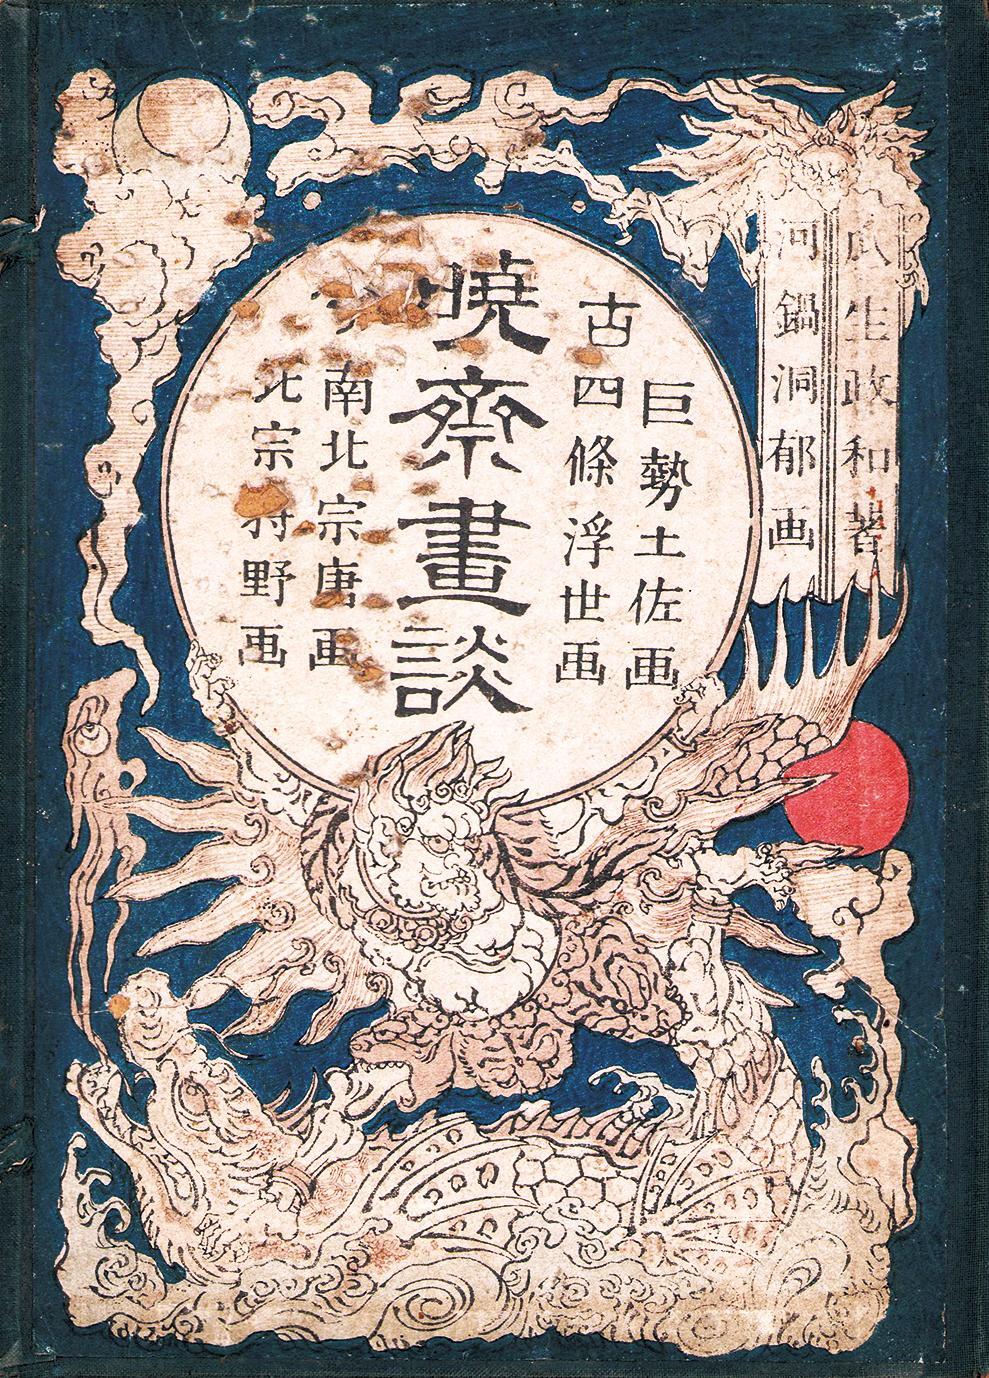 瓜生政和著
河鍋洞郁画
古
巨勢土佐画
四條浮世画
曉齋畫談
南北宗唐画
北宗狩野画